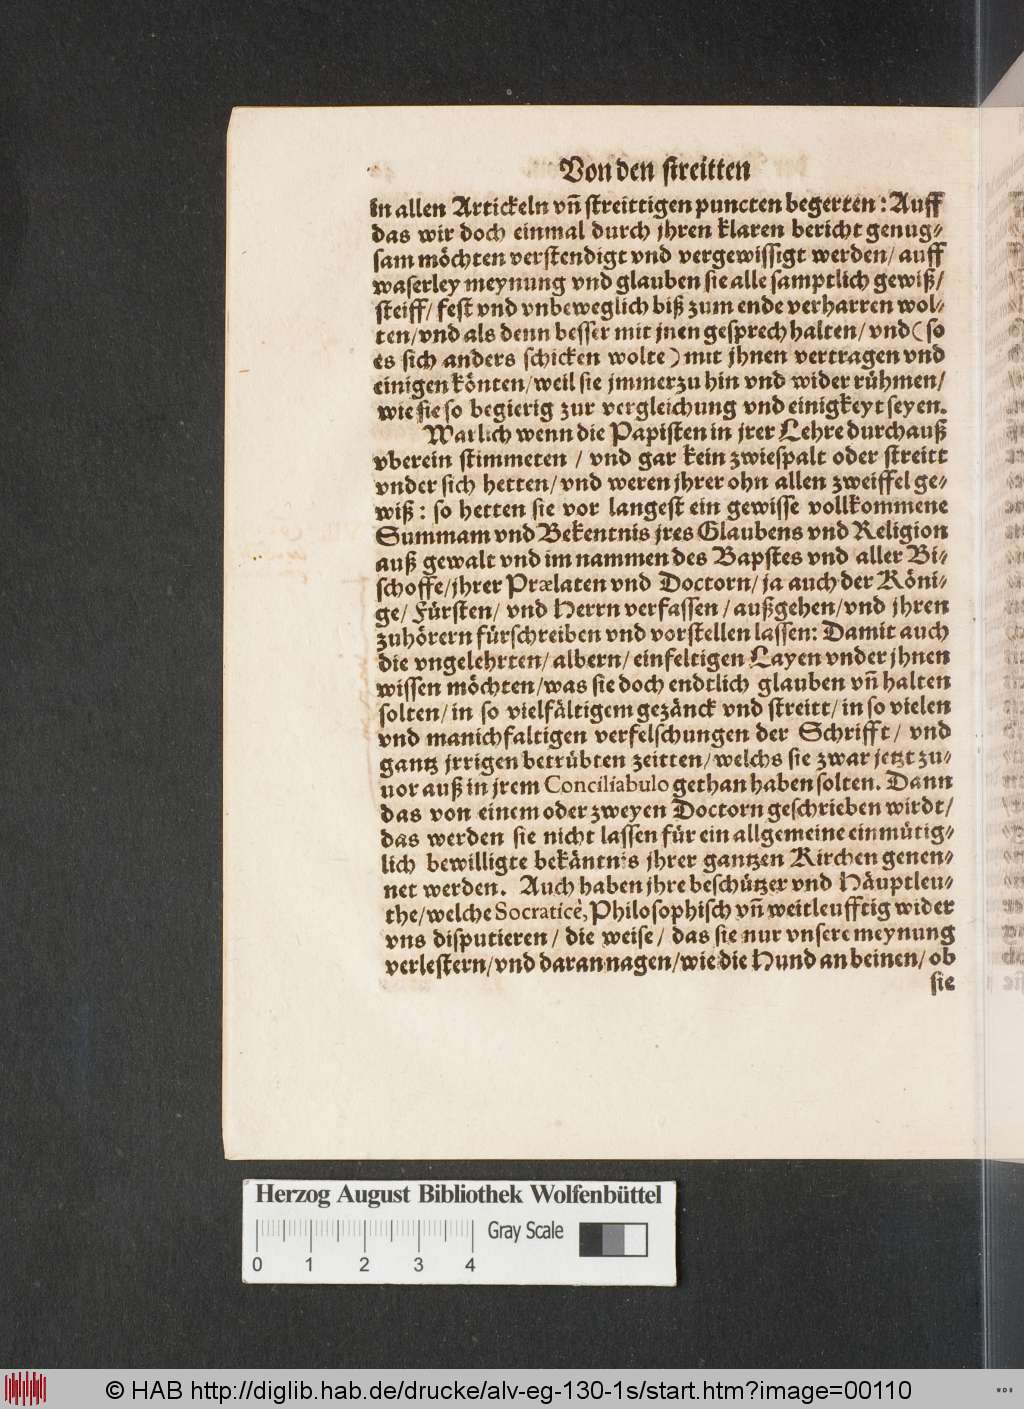 Von den streitten
in allen Artickeln vñ streittigen puncten begerten: Auff
das wir doch einmal durch jhren klaren bericht genug-
sam möchten verstendigt vnd vergewissigt werden/ auff
waserley meynung vnd glauben sie alle samptlich gewiß/
steiff/ fest vnd vnbeweglich biß zum ende verharren wol-
ten/ vnd als denn besser mit jnen gesprech halten/ vnd (so
es sich anders schicken wolte) mit jhnen vertragen vnd
einigen könten/ weil sie jmmerzu hin vnd wider rühmen/
wie sie so begierig zur vergleichung vnd einigkeyt seyen.
Warlich wenn die Papisten in jrer Lehre durchauß
vberein stimmeten / vnd gar kein zwiespalt oder streitt
vnder sich hetten/ vnd weren jhrer ohn allen zweiffel ge-
wiß: so hetten sie vor langest ein gewisse vollkommene
Summam vnd Bekentnis jres Glaubens vnd Religion
auß gewalt vnd im nammen des Bapstes vnd aller Bi-
schoffe/ jhrer Prælaten vnd Doctorn/ ja auch der Köni-
ge/ Fürsten/ vnd Herrn verfassen / außgehen/ vnd jhren
zuhörern fürschreiben vnd vorstellen lassen: Damit auch
die vngelehrten/ albern/ einfeltigen Layen vnder jhnen
wissen möchten/ was sie doch endtlich glauben vñ halten
solten/ in so vielfältigem gezänck vnd streitt/ in so vielen
vnd manichfaltigen verfelschungen der Schrifft/ vnd
gantz jrrigen betrübten zeitten/ welchs sie zwar jetzt zu-
uor auß in jrem Conciliabulo gethan haben solten. Dann
das von einem oder zweyen Doctorn geschrieben wirdt/
das werden sie nicht lassen für ein allgemeine einmütig-
lich bewilligte bekäntnis jhrer gantzen Kirchen genen-
net werden. Auch haben jhre beschützer vnd Häuptleu-
the/ welche Socraticè, Philosophisch vñ weitleufftig wider
vns disputieren / die weise / das sie nur vnsere meynung
verlestern/ vnd daran nagen/ wie die Hund an beinen/ ob
sie
Herzog August Bibliothek Wolfenbüttel
Gray Scale
0 1 2 3 4
© HAB http://diglib.hab.de/drucke/alv-eg-130-1s/start.htm?image=00110